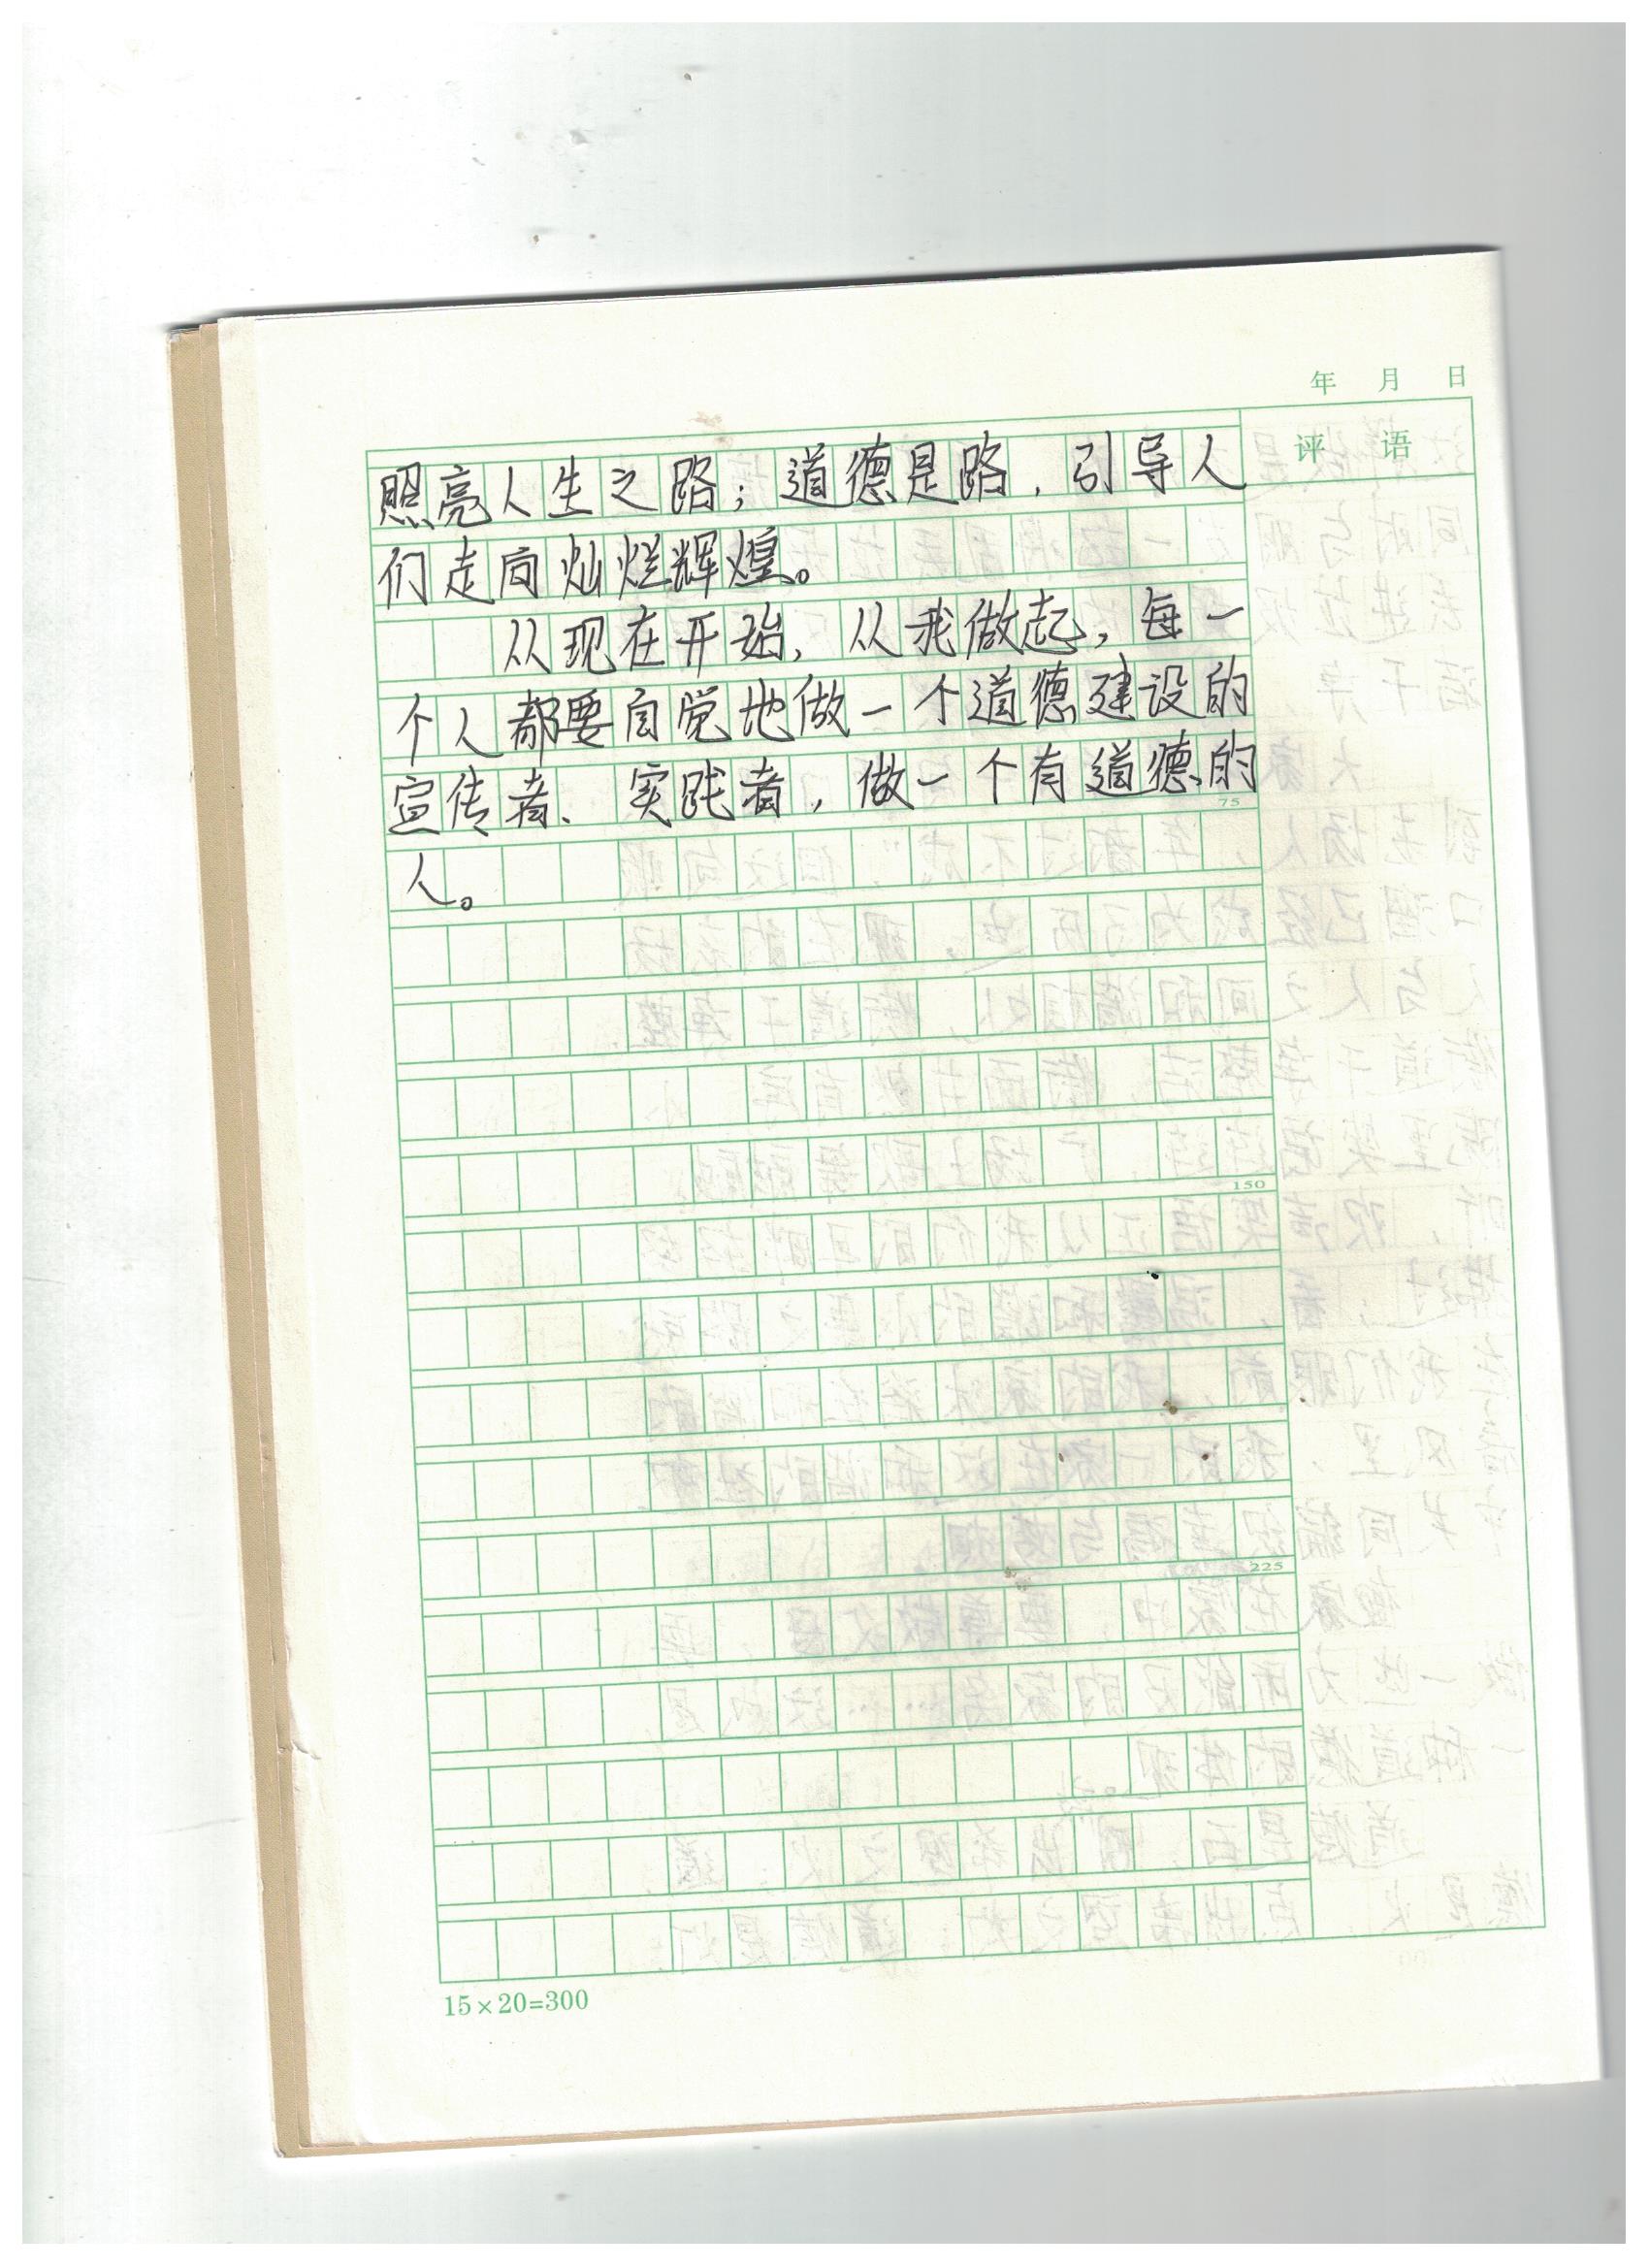 年 月 日
评 语
照亮人生之路；道德是路，引导人
们走向灿烂辉煌。
从现在开始，从我做起，每一
个人都要自觉地做一个道德建设的
宣传者、实践者，做一个有道德的
75
人。
150
225
15×20=300